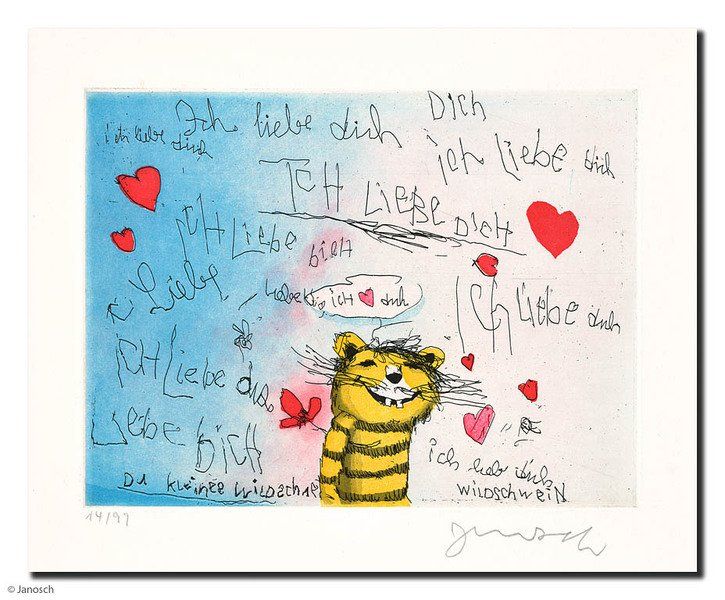 DICH
Ich liebe dich
ich liebe dich
ich liebe dich
ICH LIEBE DICH
ICH LIEBE DICH
Liebe
ICH dich
ICH liebe dich
ICH Liebe
LIEBE DICH
ich dich
DU KLEINES
WILDSCHWEIN
14/99
Janosch
© Janosch